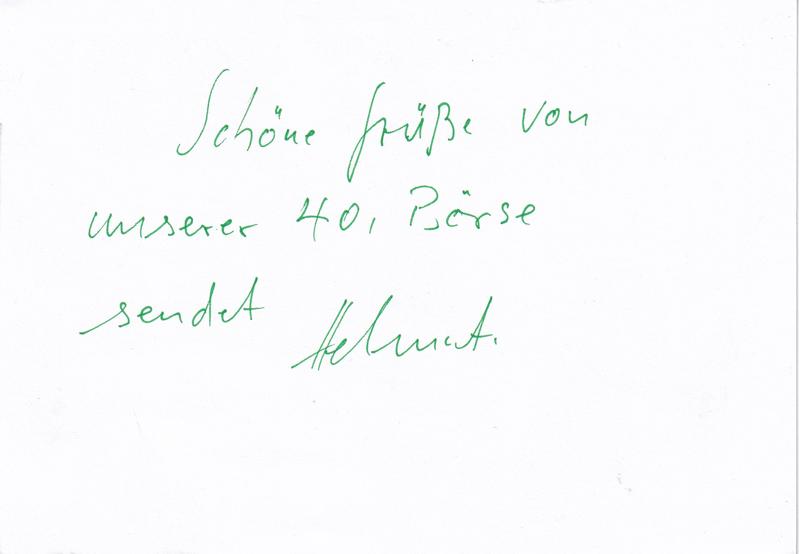 Schöne Grüße von
unserer 40. Börse
sendet
Helmut.